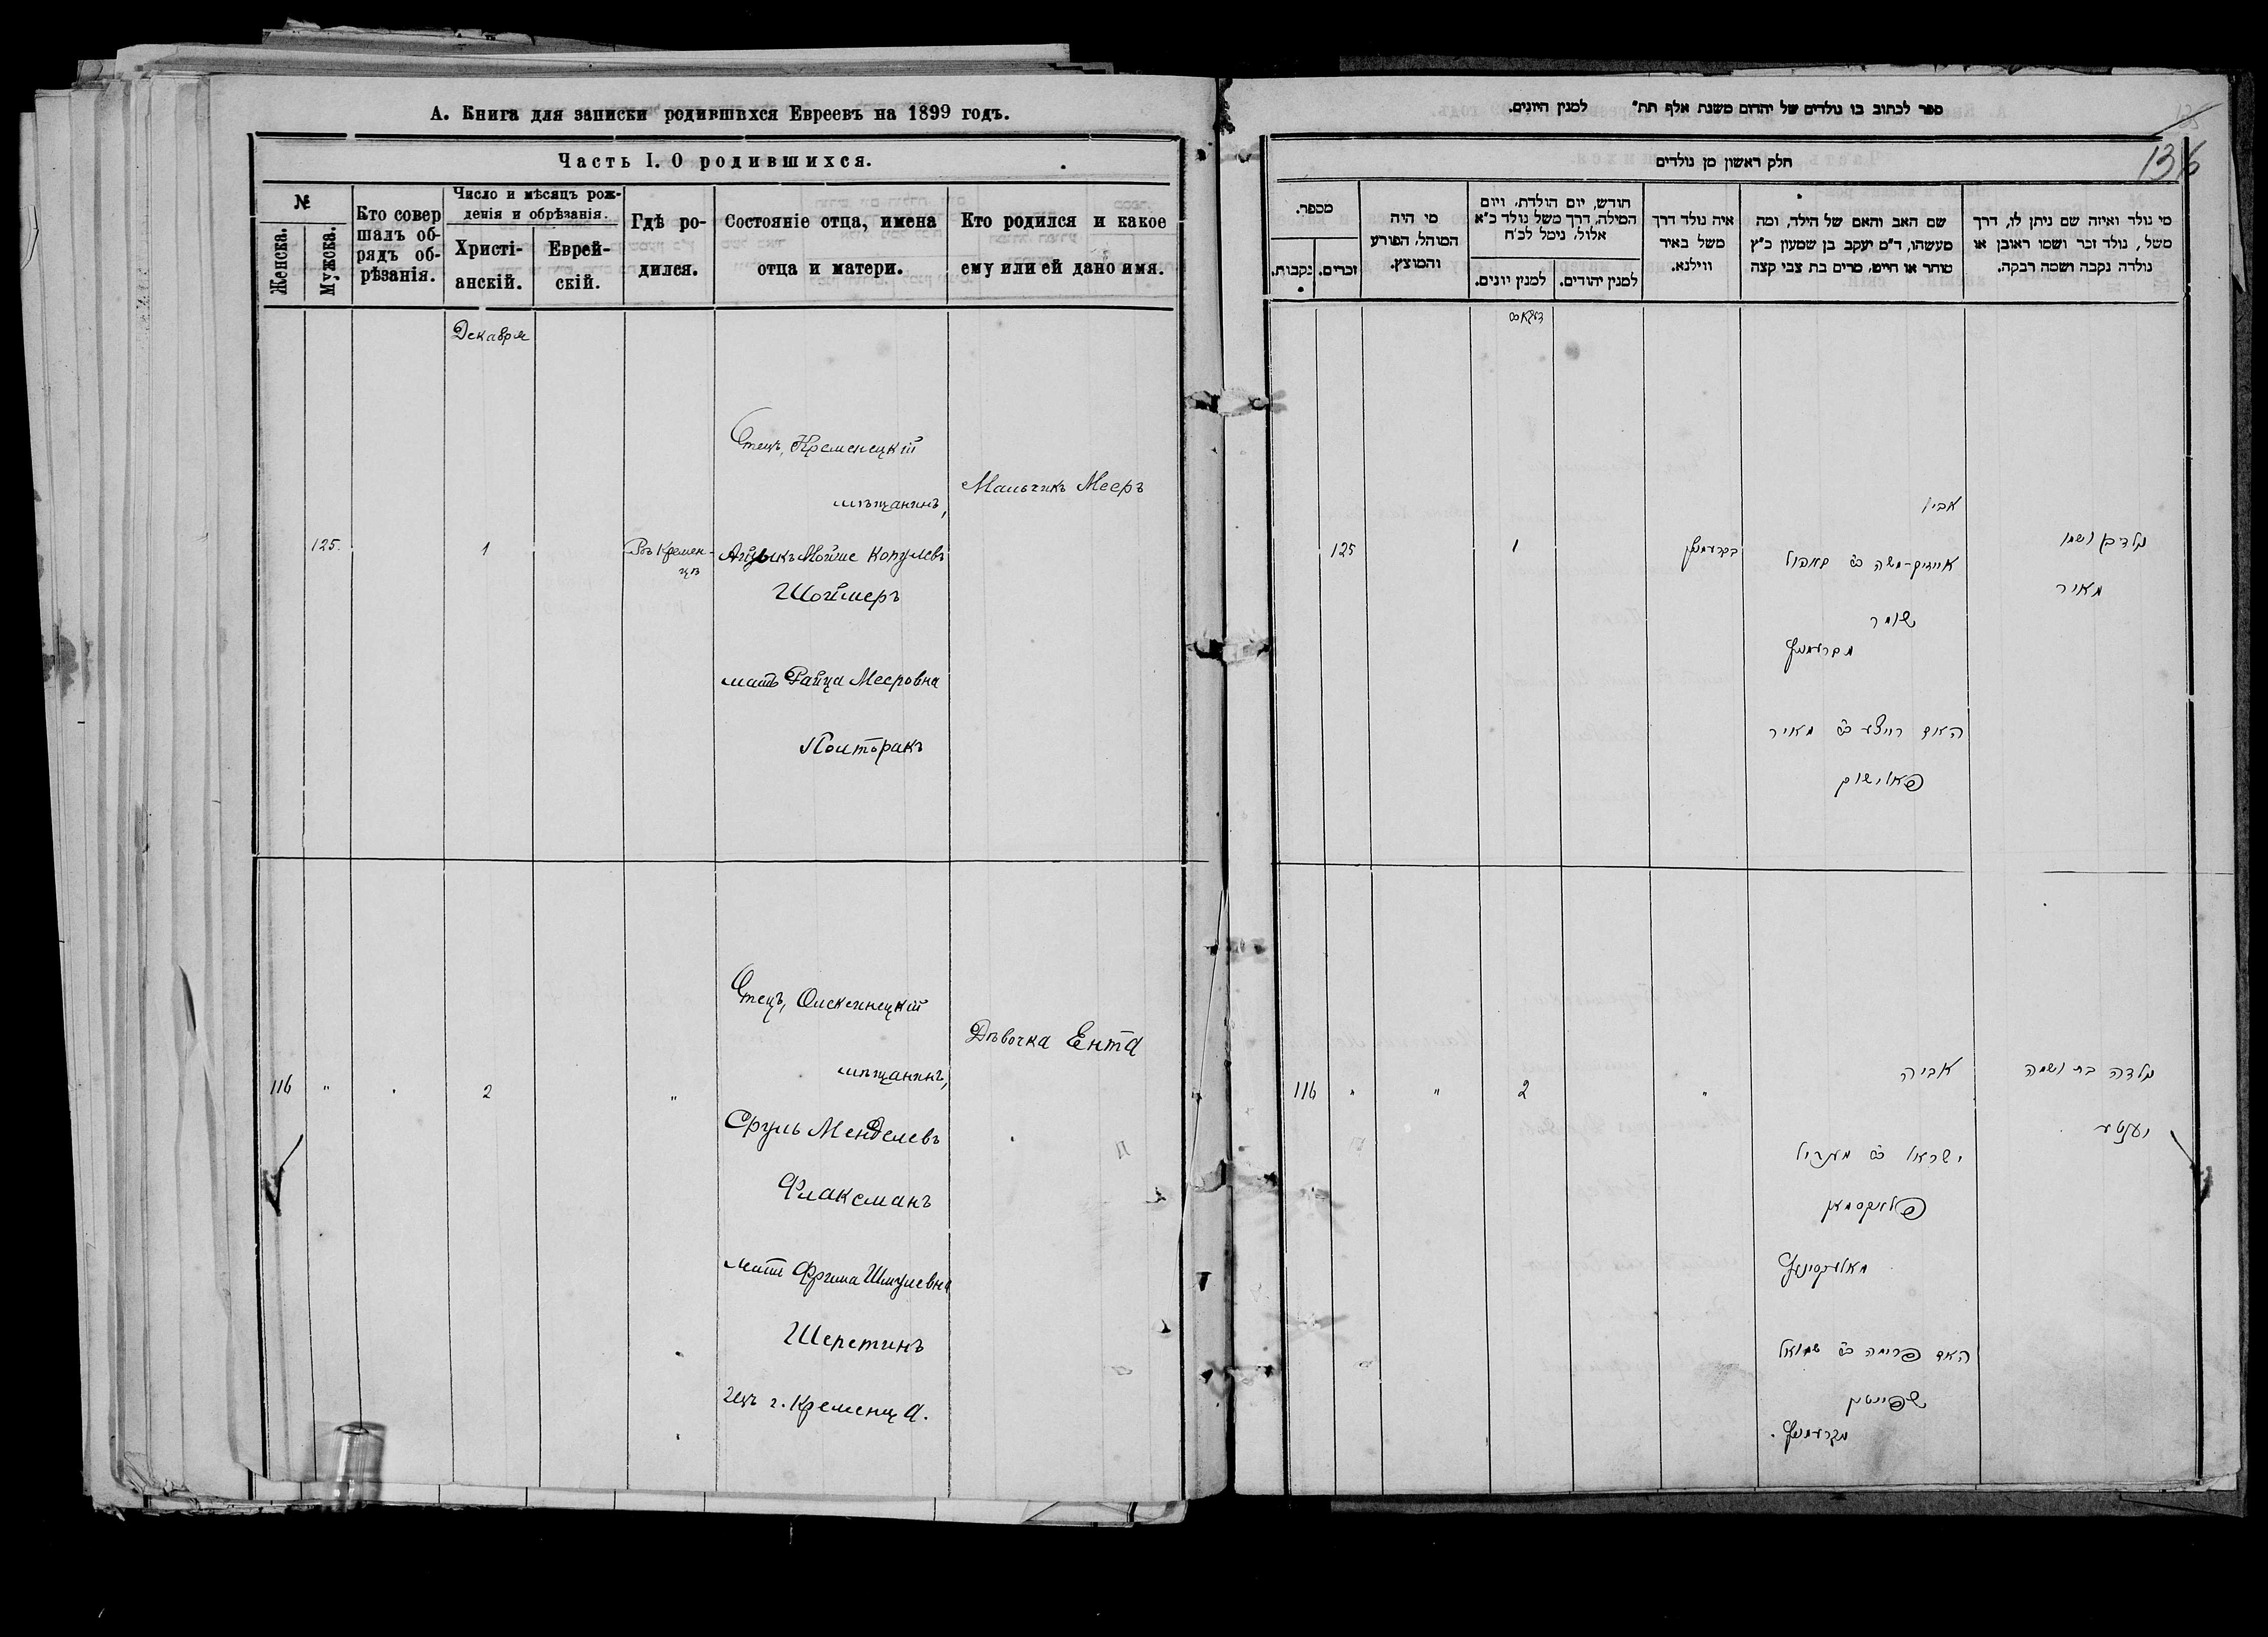 А. Книга для записки родившихся Евреевъ на 1899 годъ.
Часть I. О родившихся.
№
Женска.
Мужска.
Кто совер
шалъ об-
рядъ об-
рѣзанія.
Число и мѣсяцъ рож-
денія и обрѣзанія.
Христі-
анскій.
Еврей-
скій.
Гдѣ ро-
дился.
Состояніе отца, имена
отца и матери.
Кто родился и какое
ему или ей дано имя.
Декабря
125.
1
Въ Кремен-
цѣ
Отецъ, Кременецкій
мѣщанинъ,
Айзыкъ Мойше Копулевъ
Шоймеръ
мать Райца Мееровна
Полторакъ
Мальчикъ Мееръ
116
"
2
"
Отецъ, Олексинецкій
мѣщанинъ,
Сруль Менделевъ
Флаксманъ
мать Фрима Шмулевна
Шепетинъ
изъ г. Кременца.
Дѣвочка Ента
ספר לכתוב בו נולדים של יהדום משנת אלף תת״ למנין היונים.
136
חלק ראשון מן נולדים
מספר.
נקבות.
זכרים.
מי היה
המוהל, הפורע
והמוצץ.
חודש, יום הולדת, ויום
המילה, דרך משל נולד כ״א
אלול, נימל לכ״ח
למנין יונים.
למנין יהודים.
איה נולד דרך
משל באיר
ווילנא.
שם האב והאם של הילד, ומה
מעשהו, ד״מ יעקב בן שמעון כ״ץ
סוחר או חייט, מרים בת צבי קצה
מי נולד ואיזה שם ניתן לו, דרך
משל, נולד זכר ושמו ראובן או
נולדה נקבה ושמה רבקה.
125
1
בקרעמניץ
אביו
אייזיק-משה ב״ר קאפול
שומר
מקרעמניץ
האם רייצע ב״ר מאיר
נולד בן ושמו
מאיר
116
"
"
2
"
אביה
ישראל ב״ר מענדיל
פלאקסמאן
מאלעקסיניץ
האם פרימה ב״ר שמואל
שפיטין
מקרעמניץ.
נולדה בת ושמה
יענטע